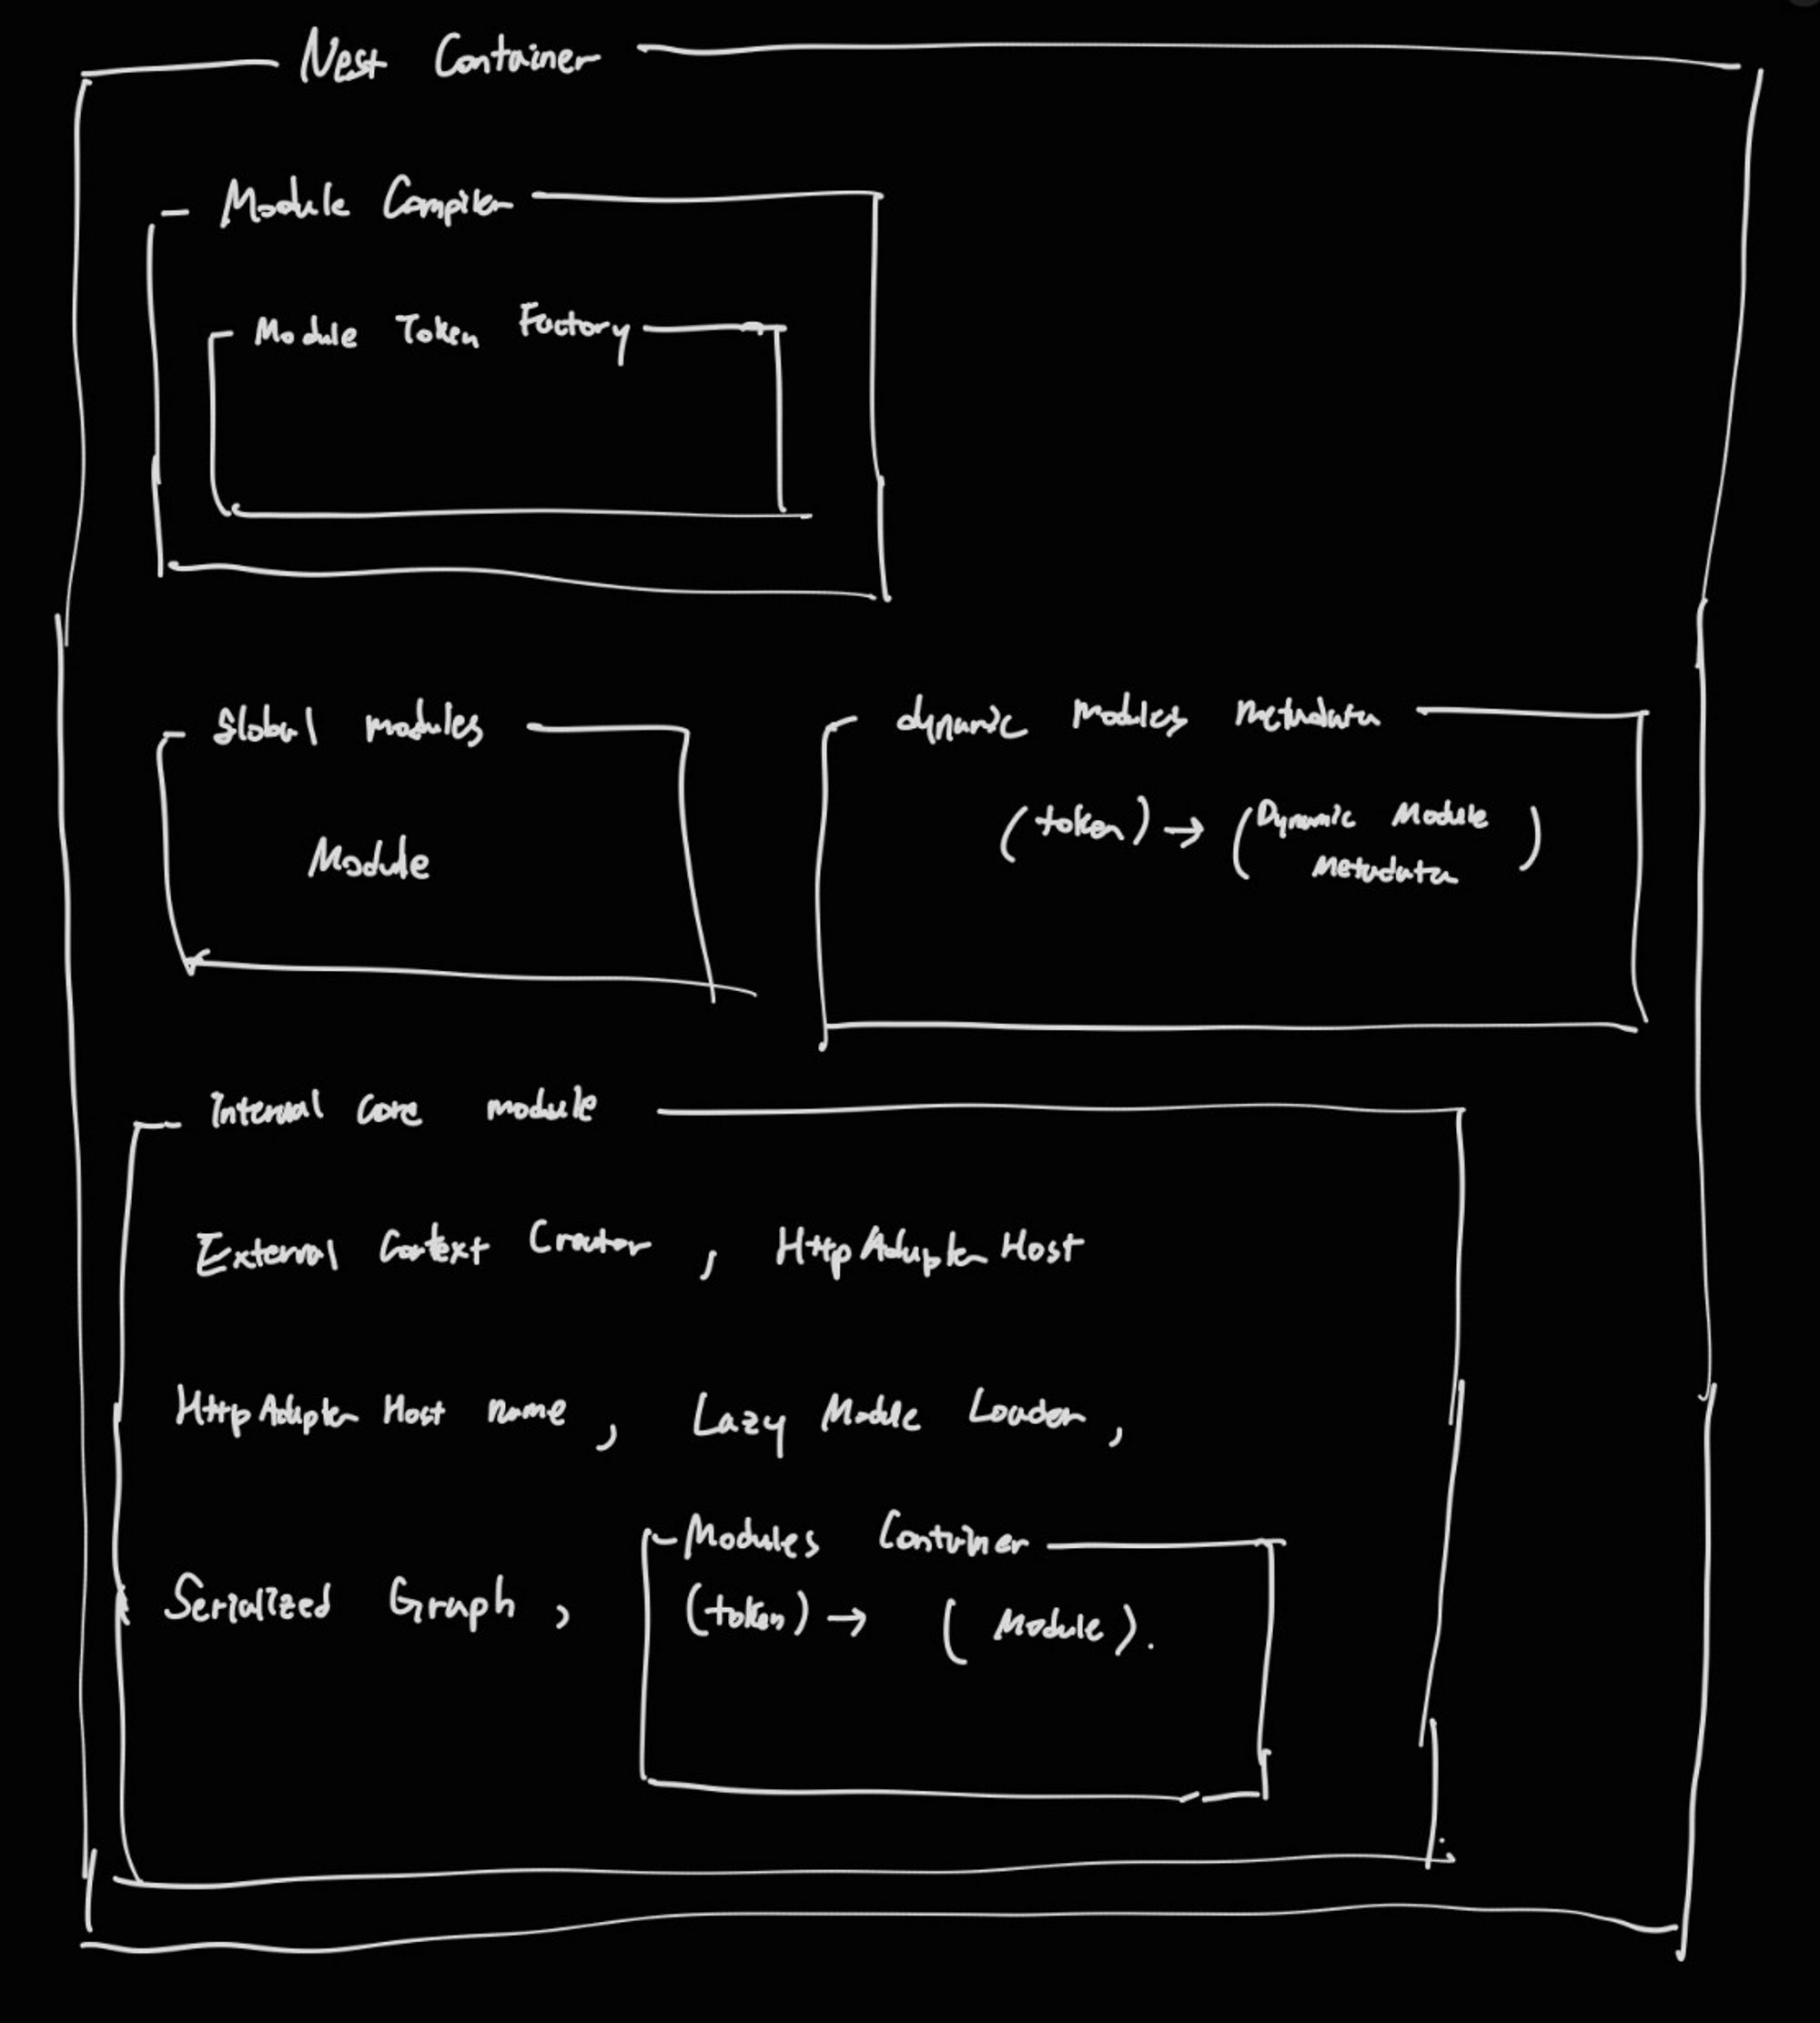 Nest Container
Module Compiler
Module Token Factory
Global modules
Module
dynamic modules metadata
(token) → (Dynamic Module Metadata)
Internal core module
External Context Creator , HttpAdapter Host
HttpAdapter Host name , Lazy Module Loader ,
Serialized Graph ,
Modules Container
(token) → (Module).